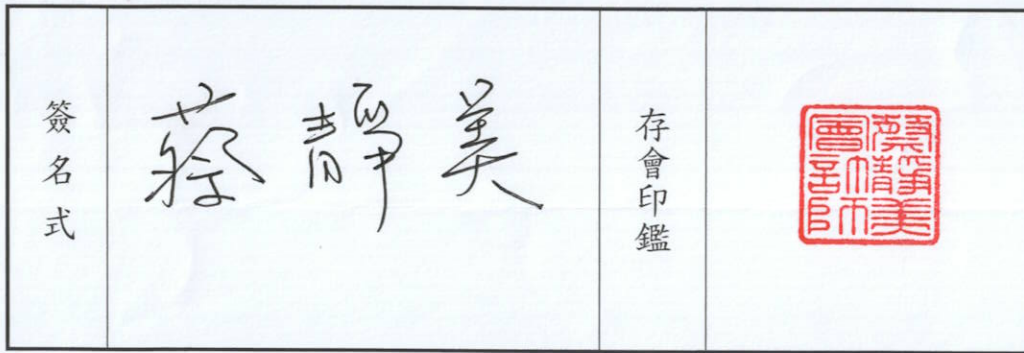 簽名式
蔡靜美
存會印鑑
蔡靜美
會計師